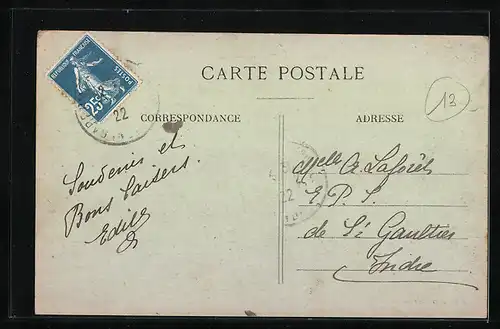 REPUBLIQUE FRANCAISE
POSTES
25c
22
CARTE POSTALE
13
CORRESPONDANCE
ADRESSE
Souvenirs et
Bons baisers.
22
Melle A. Laforêt
E. P. S.
de St Gaultier
Indre